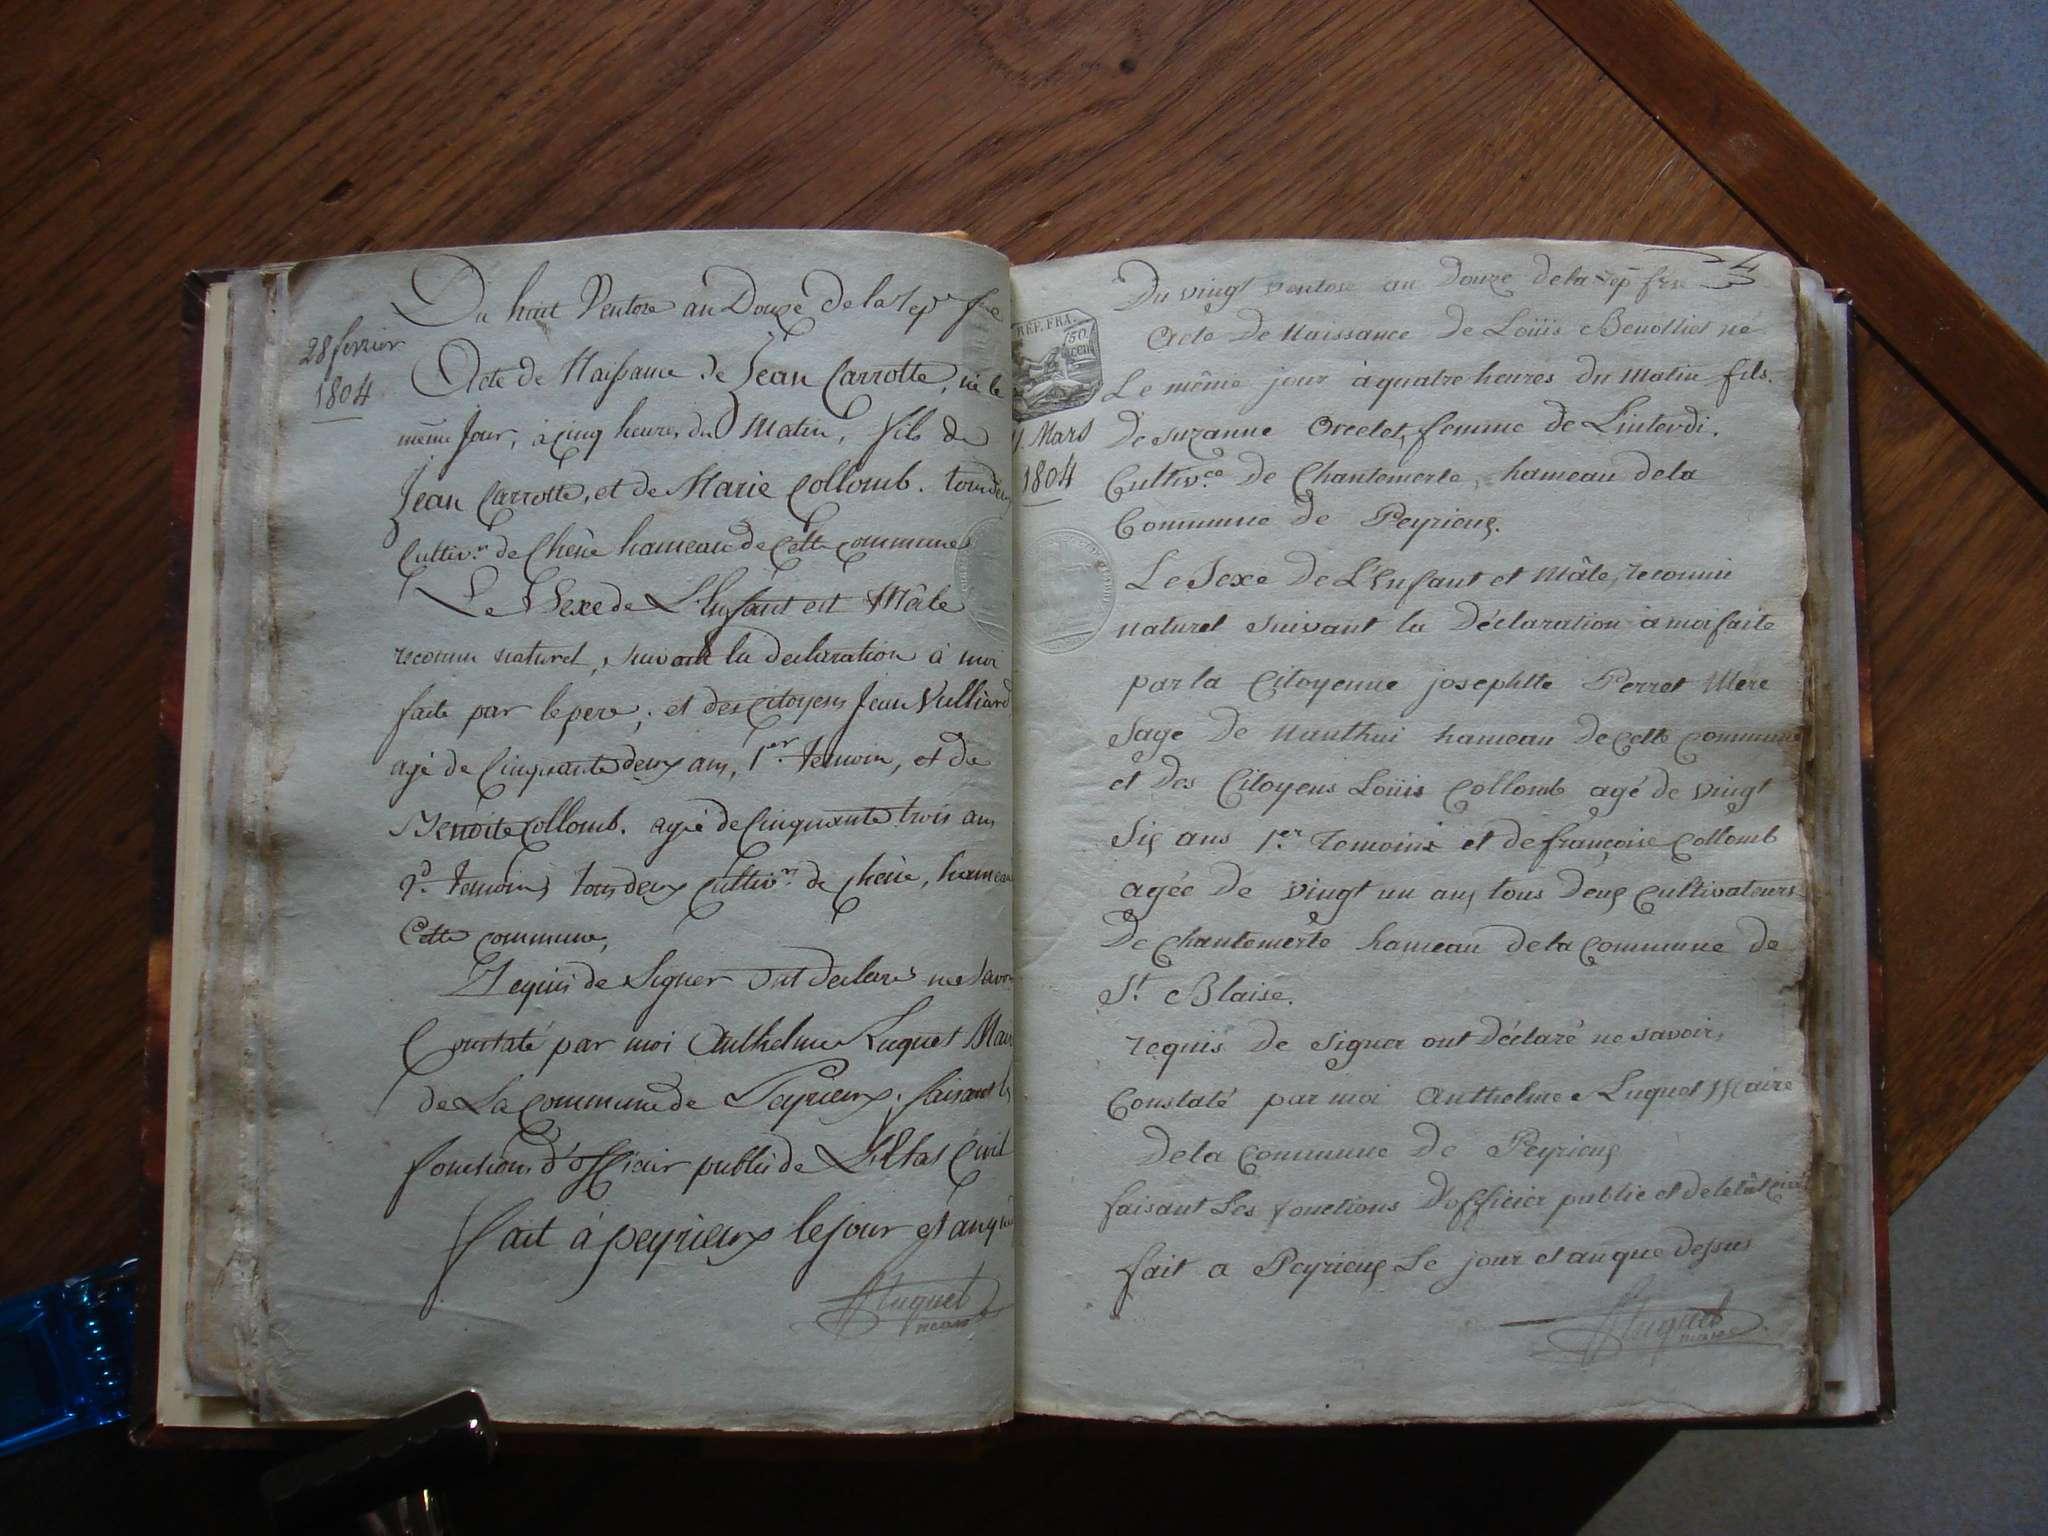 28 fevrier
1804
Du huit Ventose an Douze de la rep.e fse
Acte de Naissance de Jean Carrotte, né le
même Jour, à cinq heures du Matin, fils de
Jean Carrotte, et de Marie Collomb. tous deux
Cultiv.rs de Cheïie hameau de Cette commune
Le Sexe de L'Enfant est Mâle
reconnu naturel, suivant la declaration à moi
faite par le pere, et des Citoyens Jean Vulliard
agé de Cinquante deux ans, 1.er temoin, et de
Benoite Collomb. agé de Cinquante trois ans
2.d temoin, tous deux Cultiv.rs de Cheïie, hameau
Cette commune,
Requis de Signer ont declaré ne savoir
Constaté par moi Anthelme Luquet Maire
de La commune de Peyrieux, faisant les
fonctions d'officier public de L'Etat Civil
fait à peyrieux le jour et an que
Luquet
maire
REP. FRA.
50
cent
Mars
1804
Du vingt ventose an Douze de la rep fse
Acte de Naissance de Loüis Benollied né
Le même jour à quatre heures du Matin fils.
De Suzanne Orcelet, femme de L'interdi.
Cultiv.ce de Chantemerle, hameau de la
Commune de Peyrieux.
Le Sexe De L'Enfant et Mâle, reconnu
naturel suivant la Déclaration à moi faite
par la Citoyenne josephtte Perret Mere
Sage de Nanthui hameau de Cette Commune
et des Citoyens Loüis Collomb agé de vingt
Six ans 1.er Temoins et de françoise Collomb
agée De vingt un ans tous Deux Cultivateurs
De Chantemerle hameau de la Commune de
S.t Blaise.
requis De Signer ont Déclaré ne savoir,
Constaté par moi Anthelme Luquet Maire
De la Commune De Peyrieux
faisant Les fonctions D'officier public et de letât civil
fait a Peyrieux Le jour et an que Dessus
Luquet
maire